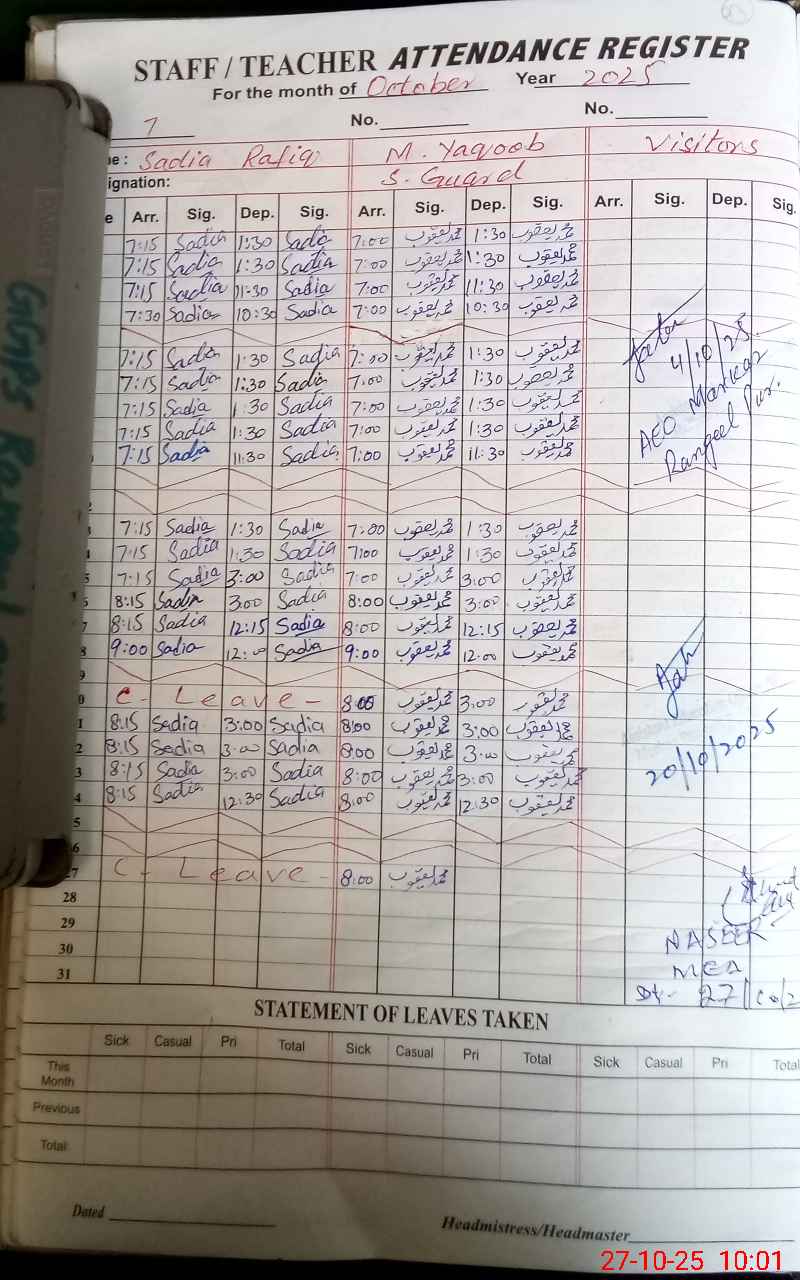 STAFF / TEACHER ATTENDANCE REGISTER
For the month of October Year 2025
7 No. No.
e : Sadia Rafiq M. Yaqoob Visitors
ignation: S. Guard
e Arr. Sig. Dep. Sig. Arr. Sig. Dep. Sig. Arr. Sig. Dep. Sig.
7:15 Sadia 1:30 Sadia 7:00 محمد یعقوب 1:30 محمد یعقوب
7:15 Sadia 1:30 Sadia 7:00 محمد یعقوب 1:30 محمد یعقوب
7:15 Sadia 11:30 Sadia 7:00 محمد یعقوب 11:30 محمد یعقوب
7:30 Sadia 10:30 Sadia 7:00 محمد یعقوب 10:30 محمد یعقوب
7:15 Sadia 1:30 Sadia 7:00 محمد یعقوب 1:30 محمد یعقوب
7:15 Sadia 1:30 Sadia 7:00 محمد یعقوب 1:30 محمد یعقوب
7:15 Sadia 1:30 Sadia 7:00 محمد یعقوب 1:30 محمد یعقوب
7:15 Sadia 1:30 Sadia 7:00 محمد یعقوب 1:30 محمد یعقوب
7:15 Sadia 11:30 Sadia 7:00 محمد یعقوب 11:30 محمد یعقوب
4/10/25.
AEO Markaz
Rangeel Pur.
2
3 7:15 Sadia 1:30 Sadia 7:00 محمد یعقوب 1:30 محمد یعقوب
4 7:15 Sadia 1:30 Sadia 7:00 محمد یعقوب 1:30 محمد یعقوب
5 7:15 Sadia 3:00 Sadia 7:00 محمد یعقوب 3:00 محمد یعقوب
6 8:15 Sadia 3:00 Sadia 8:00 محمد یعقوب 3:00 محمد یعقوب
7 8:15 Sadia 12:15 Sadia 8:00 محمد یعقوب 12:15 محمد یعقوب
8 9:00 Sadia 12:00 Sadia 9:00 محمد یعقوب 12:00 محمد یعقوب
9
0 C - Leave - 8:00 محمد یعقوب 3:00 محمد یعقوب
1 8:15 Sadia 3:00 Sadia 8:00 محمد یعقوب 3:00 محمد یعقوب
2 8:15 Sadia 3:00 Sadia 8:00 محمد یعقوب 3:00 محمد یعقوب
3 8:15 Sadia 3:00 Sadia 8:00 محمد یعقوب 3:00 محمد یعقوب
4 8:15 Sadia 12:30 Sadia 8:00 محمد یعقوب 12:30 محمد یعقوب
20/10/2025
5
6
27 C - Leave - 8:00 محمد یعقوب
28
29
30
31
NASEER
MEA
Dt- 27/10/2
STATEMENT OF LEAVES TAKEN
Sick Casual Pri Total Sick Casual Pri Total Sick Casual Pri Total
This Month
Previous
Total
Dated
Headmistress/Headmaster
27-10-25 10:01